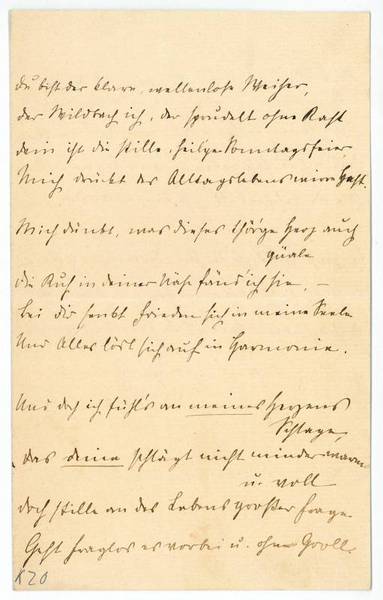 Du bist der klare, wellenlose Weiher,
der Wildbach ich, der sprudelt ohne Rast
dein ist die stille, heilge Sonntagsfeier
Mich drückt des Alltagslebens wirre Hast.
Mich dünkt, was dieses thör'ge Herz auch
quäle
die Ruh in deiner Näh' fänd' ich sie, –
bei dir senkt Frieden sich in meine Seele
Und Alles löst sich auf in Harmonie.
Und doch ich fühl's an meines Herzens
Schlage,
das deine schlägt nicht minder warm
u. voll
doch stille an des Lebens großer Frage
Geht fraglos es vorbei u. ohne Groll.
K20